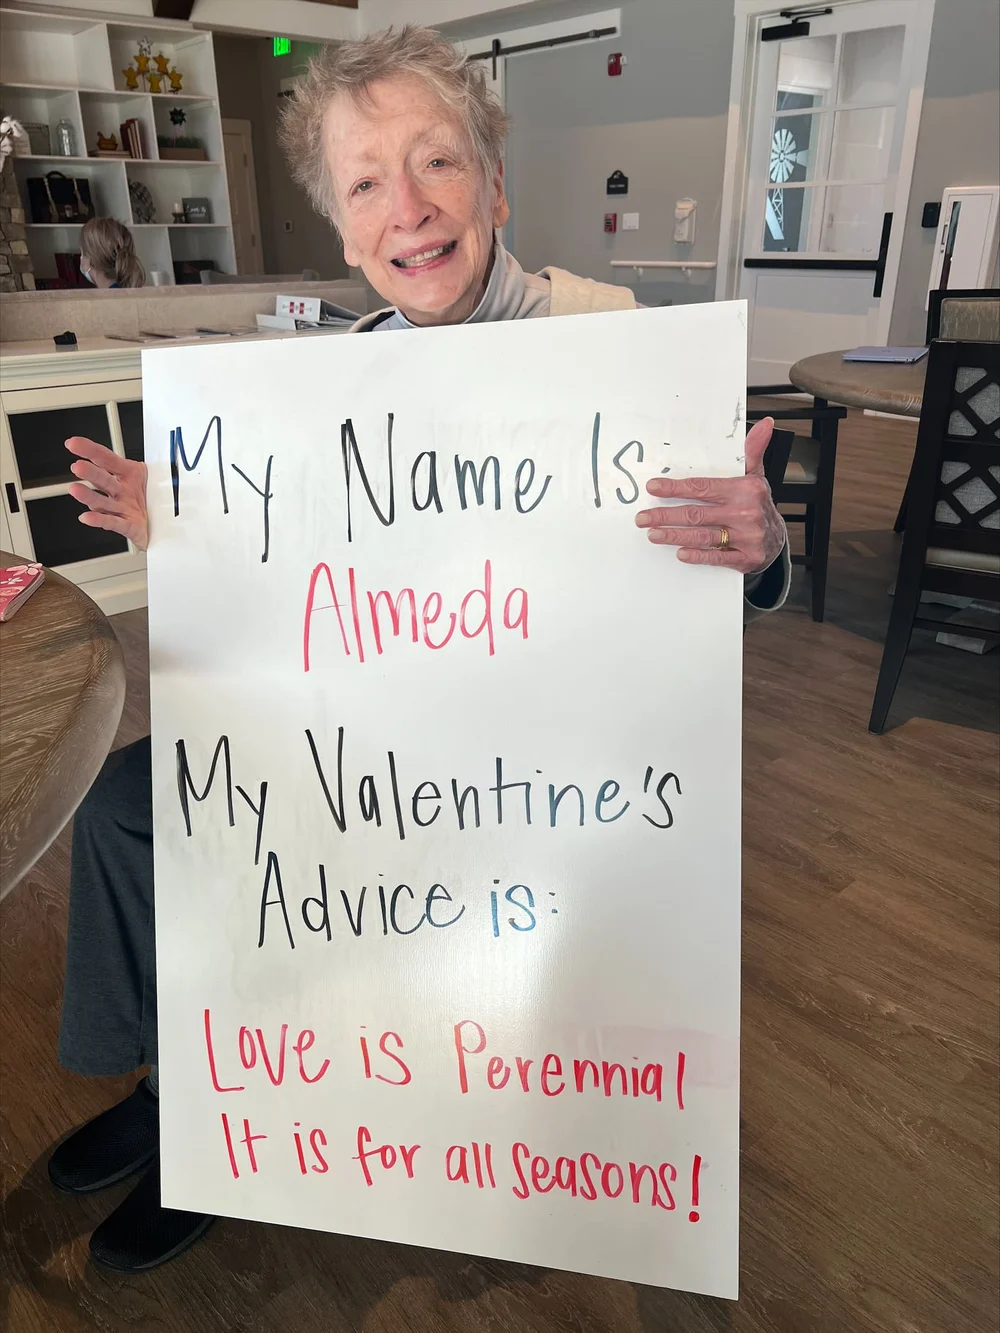 My Name Is:
Almeda
My Valentine's
Advice is:
Love is Perennial
It is for all seasons!